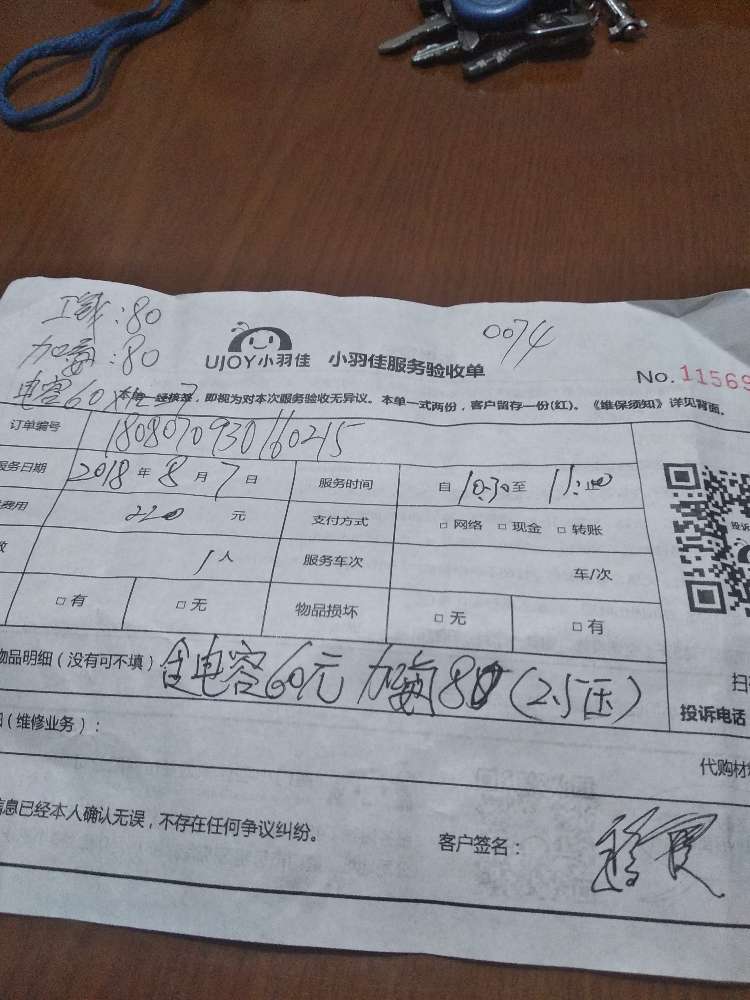 工钱:80
加氟:80
电容60
0074
UJOY小羽佳 小羽佳服务验收单
No.11569
本单一经核签，即视为对本次服务验收无异议。本单一式两份，客户留存一份(红)。《维保须知》详见背面。
订单编号 1808070930160215
服务日期 2018年8月7日 服务时间 自10:30至11:40
费用 220元 支付方式 □网络 □现金 □转账
1人 服务车次 车/次
投诉
□有 □无 物品损坏 □无 □有
物品明细（没有可不填） 电容60元 加氟80（2.5压）
投诉电话
（维修业务）：
代购材
信息已经本人确认无误，不存在任何争议纠纷。
客户签名：